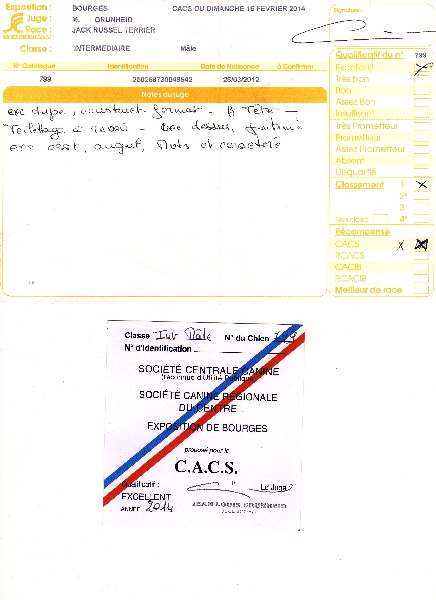 Exposition : BOURGES CACS DU DIMANCHE 16 FEVRIER 2014
Juge : M. GRUNHEID
Race : JACK RUSSEL TERRIER
Classe : INTERMEDIAIRE Mâle
Signature :
N° Catalogue Identification Date de Naissance à Confirmer
799 25/03/2012
Notes du juge
exc dupe, construct- format -
Toilettage à revoir - exc dessus, poitrine
exc ossat, angul, Mots et caractère
Qualificatif du n° 799
Excellent X
Très bon
Bon
Assez Bon
Insuffisant
Très Prometteur
Prometteur
Assez Prometteur
Absent
Disqualifié
Classement 1er X
2e
3e
Non classé 4e
Récompense
CACS X
RCACS
CACIB
RCACIB
Meilleur de race
Classe Int Mâle N° du Chien 799
N° d'Identification
SOCIÉTÉ CENTRALE CANINE
(reconnue d'Utilité Publique)
SOCIÉTÉ CANINE RÉGIONALE
DU CENTRE
EXPOSITION DE BOURGES
proposé pour le
C.A.C.S.
Qualificatif : Le Juge
EXCELLENT
ANNÉE 2014
JEAN LOUIS GRUNHEID